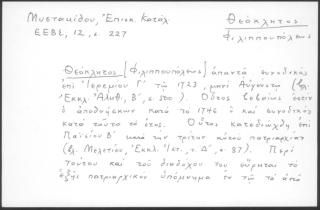 Μυστακίδου, Επισκ. Κατάλ.
ΕΕΒΣ, 12, σ. 227
Θεόκλητος
Φιλιππουπόλεως
Θεόκλητος [Φιλιππουπόλεως] απαντά συνοδικώς
επί Ιερεμίου Γ΄ τω 1723, μηνί Αύγουστω (βλ.
Εκκλ. Αλήθ., Β΄, σ. 500). Ούτος βεβαίως εστίν
ο αποθνήσκων κατά το 1746 ό και συνοδικώς
κατά τούτο το έτος. Ούτος κατεδιώχθη επί
Παϊσίου Β΄ κατά την τρίτην αυτού πατριαρχίαν
(βλ. Μελετίου, Εκκλ. Ιστ., τ. Δ΄, σ. 87). Περί
τούτου και του διαδόχου του εύρηται το
εξής πατριαρχικόν υπόμνημα εν τω τα από